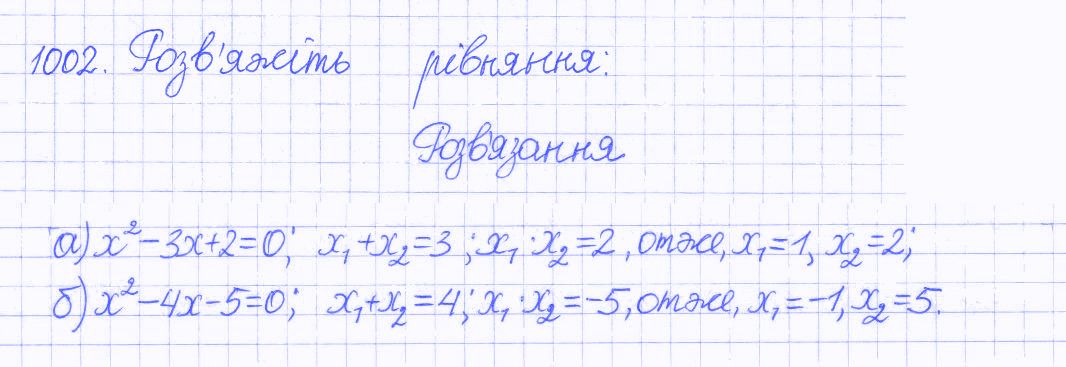 1002. Розв'яжіть рівняння:
Розв'язання
а) x² - 3x + 2 = 0; x₁ + x₂ = 3; x₁ · x₂ = 2, отже, x₁ = 1, x₂ = 2;
б) x² - 4x - 5 = 0; x₁ + x₂ = 4; x₁ · x₂ = -5, отже, x₁ = -1, x₂ = 5.